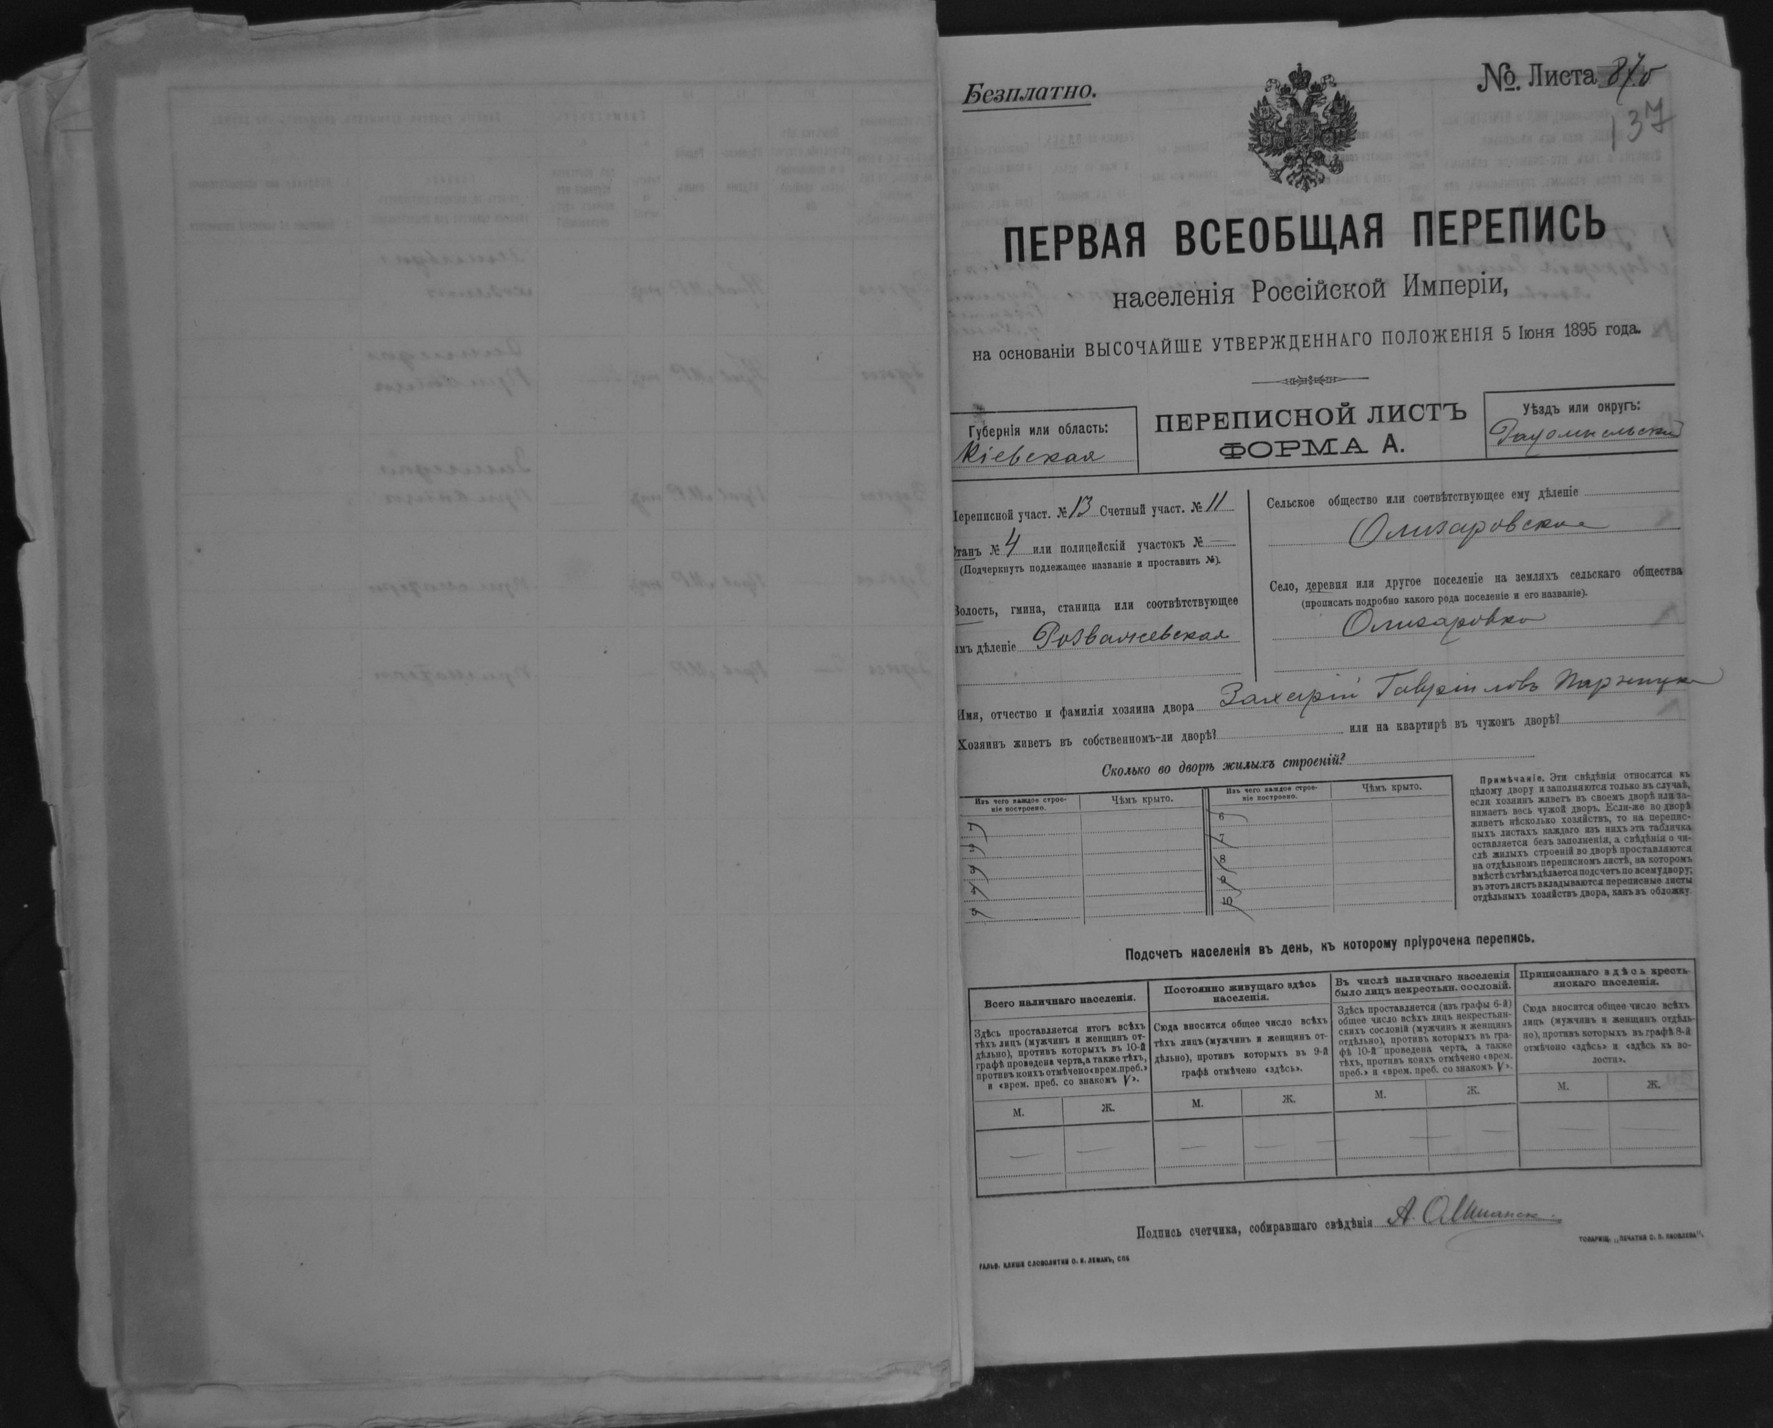 Безплатно.
№. Листа
137
ПЕРВАЯ ВСЕОБЩАЯ ПЕРЕПИСЬ
населенія Россійской Имперіи,
на основаніи ВЫСОЧАЙШЕ УТВЕРЖДЕННАГО ПОЛОЖЕНІЯ 5 Іюня 1895 года.
Губернія или область:
Кіевская
ПЕРЕПИСНОЙ ЛИСТЪ
ФОРМА А.
Уѣздъ или округъ:
Радомысльскій
Переписной участ. № 13 Счетный участ. № 11
Станъ № 4 или полицейскій участокъ № —
(Подчеркнуть подлежащее названіе и проставить №).
Волость, гмина, станица или соотвѣтствующее
имъ дѣленіе Розважевская
Сельское общество или соотвѣтствующее ему дѣленіе
Олизаровское
Село, деревня или другое поселеніе на земляхъ сельскаго общества
(прописать подробно какого рода поселеніе и его названіе).
Олизаровка
Имя, отчество и фамилія хозяина двора Захарій Гавриловъ
Хозяинъ живетъ въ собственномъ-ли дворѣ? или на квартирѣ въ чужомъ дворѣ?
Сколько во дворѣ жилыхъ строеній?
Изъ чего каждое строе-
ніе построено.
Чѣмъ крыто.
Изъ чего каждое строе-
ніе построено.
Чѣмъ крыто.
6
7
8
9
10
Примѣчаніе. Эти свѣдѣнія относятся къ
цѣлому двору и заполняются только въ случаѣ,
если хозяинъ живетъ въ своемъ дворѣ или за-
нимаетъ весь чужой дворъ. Если-же во дворѣ
живетъ нѣсколько хозяйствъ, то на перепис-
ныхъ листахъ каждаго изъ нихъ эта табличка
оставляется безъ заполненія, а свѣдѣнія о чи-
слѣ жилыхъ строеній во дворѣ проставляются
на отдѣльномъ переписномъ листѣ, на которомъ
вмѣстѣ съ тѣмъ дѣлается подсчетъ по всему двору;
въ этотъ листъ вкладываются переписные листы
отдѣльныхъ хозяйствъ двора, какъ въ обложку.
Подсчетъ населенія въ день, къ которому пріурочена перепись.
Всего наличнаго населенія.
Здѣсь проставляется итогъ всѣхъ
тѣхъ лицъ (мужчинъ и женщинъ от-
дѣльно), противъ которыхъ въ 10-й
графѣ проведена черта, а также тѣхъ,
противъ коихъ отмѣчено «врем. преб.»
и «врем. преб. со знакомъ V».
М. Ж.
— —
Постоянно живущаго здѣсь
населенія.
Сюда вносится общее число всѣхъ
тѣхъ лицъ (мужчинъ и женщинъ от-
дѣльно), противъ которыхъ въ 9-й
графѣ отмѣчено «здѣсь».
М. Ж.
— —
Въ числѣ наличнаго населенія
было лицъ некрестьян. сословій.
Здѣсь проставляется (изъ графы 6-й)
общее число всѣхъ лицъ некрестьян-
скихъ сословій (мужчинъ и женщинъ
отдѣльно), противъ которыхъ въ гра-
фѣ 10-й проведена черта, а также
тѣхъ, противъ коихъ отмѣчено «врем.
преб.» и «врем. преб. со знакомъ V».
М. Ж.
— —
Приписаннаго здѣсь кресть-
янскаго населенія.
Сюда вносится общее число всѣхъ
лицъ (мужчинъ и женщинъ отдѣль-
но), противъ которыхъ въ графѣ 8-й
отмѣчено «здѣсь» и «здѣсь къ во-
лости».
М. Ж.
— —
Подпись счетчика, собиравшаго свѣдѣнія А.
ГАЛЬВ. КЛИШЕ СЛОВОЛИТНИ О. И. ЛЕМАНЪ, СПБ
ТОВАРИЩ. „ПЕЧАТНЯ С. П. ЯКОВЛЕВА".